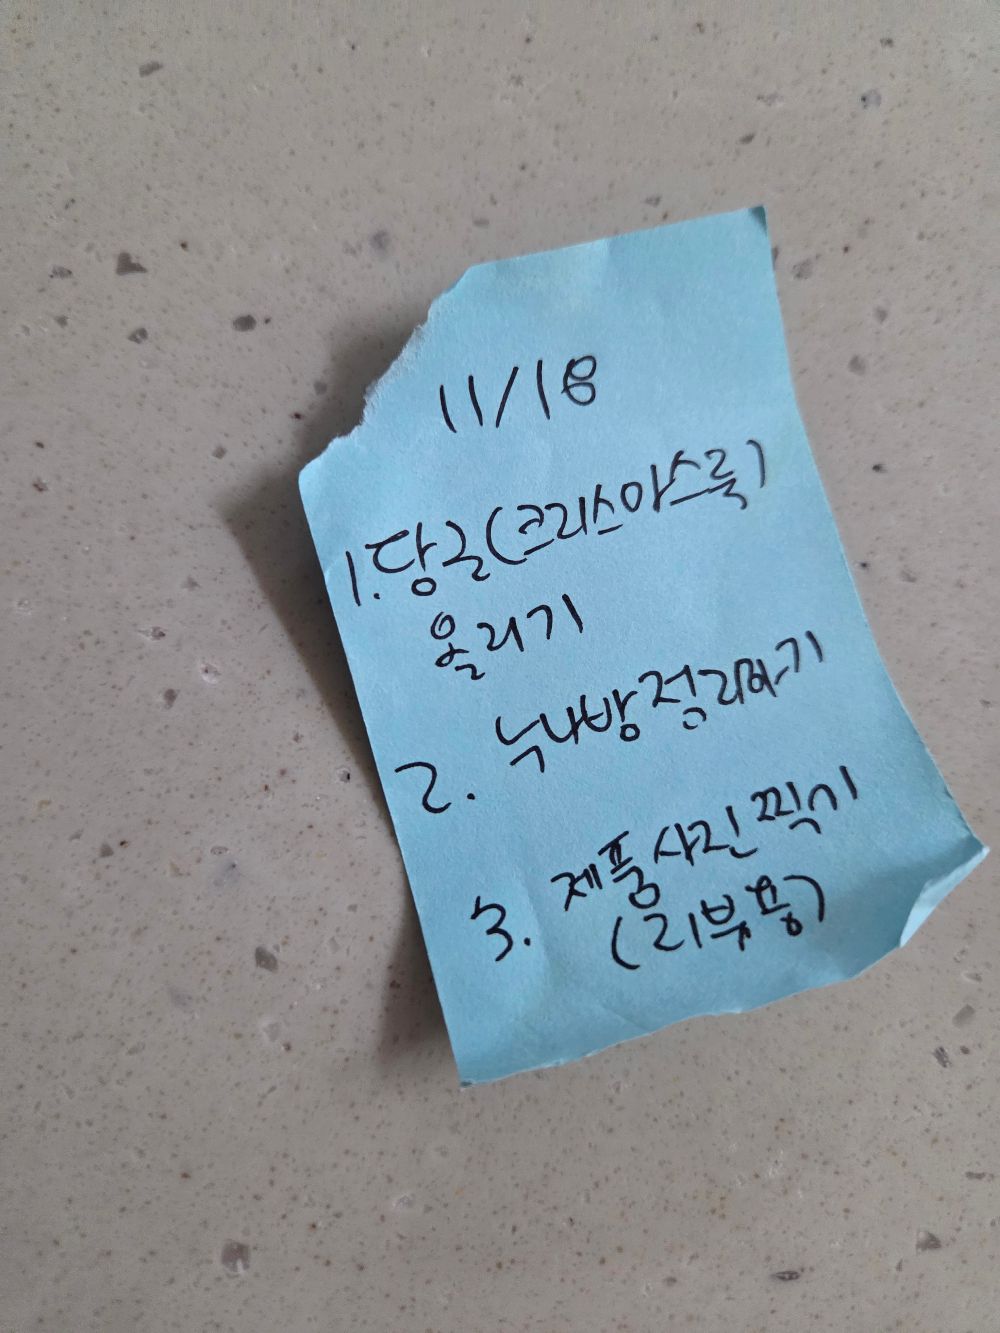 11/18
1. 당근(크리스마스룩)
올리기
2. 누나방정리하기
3. 제품사진찍기
(리뷰용)